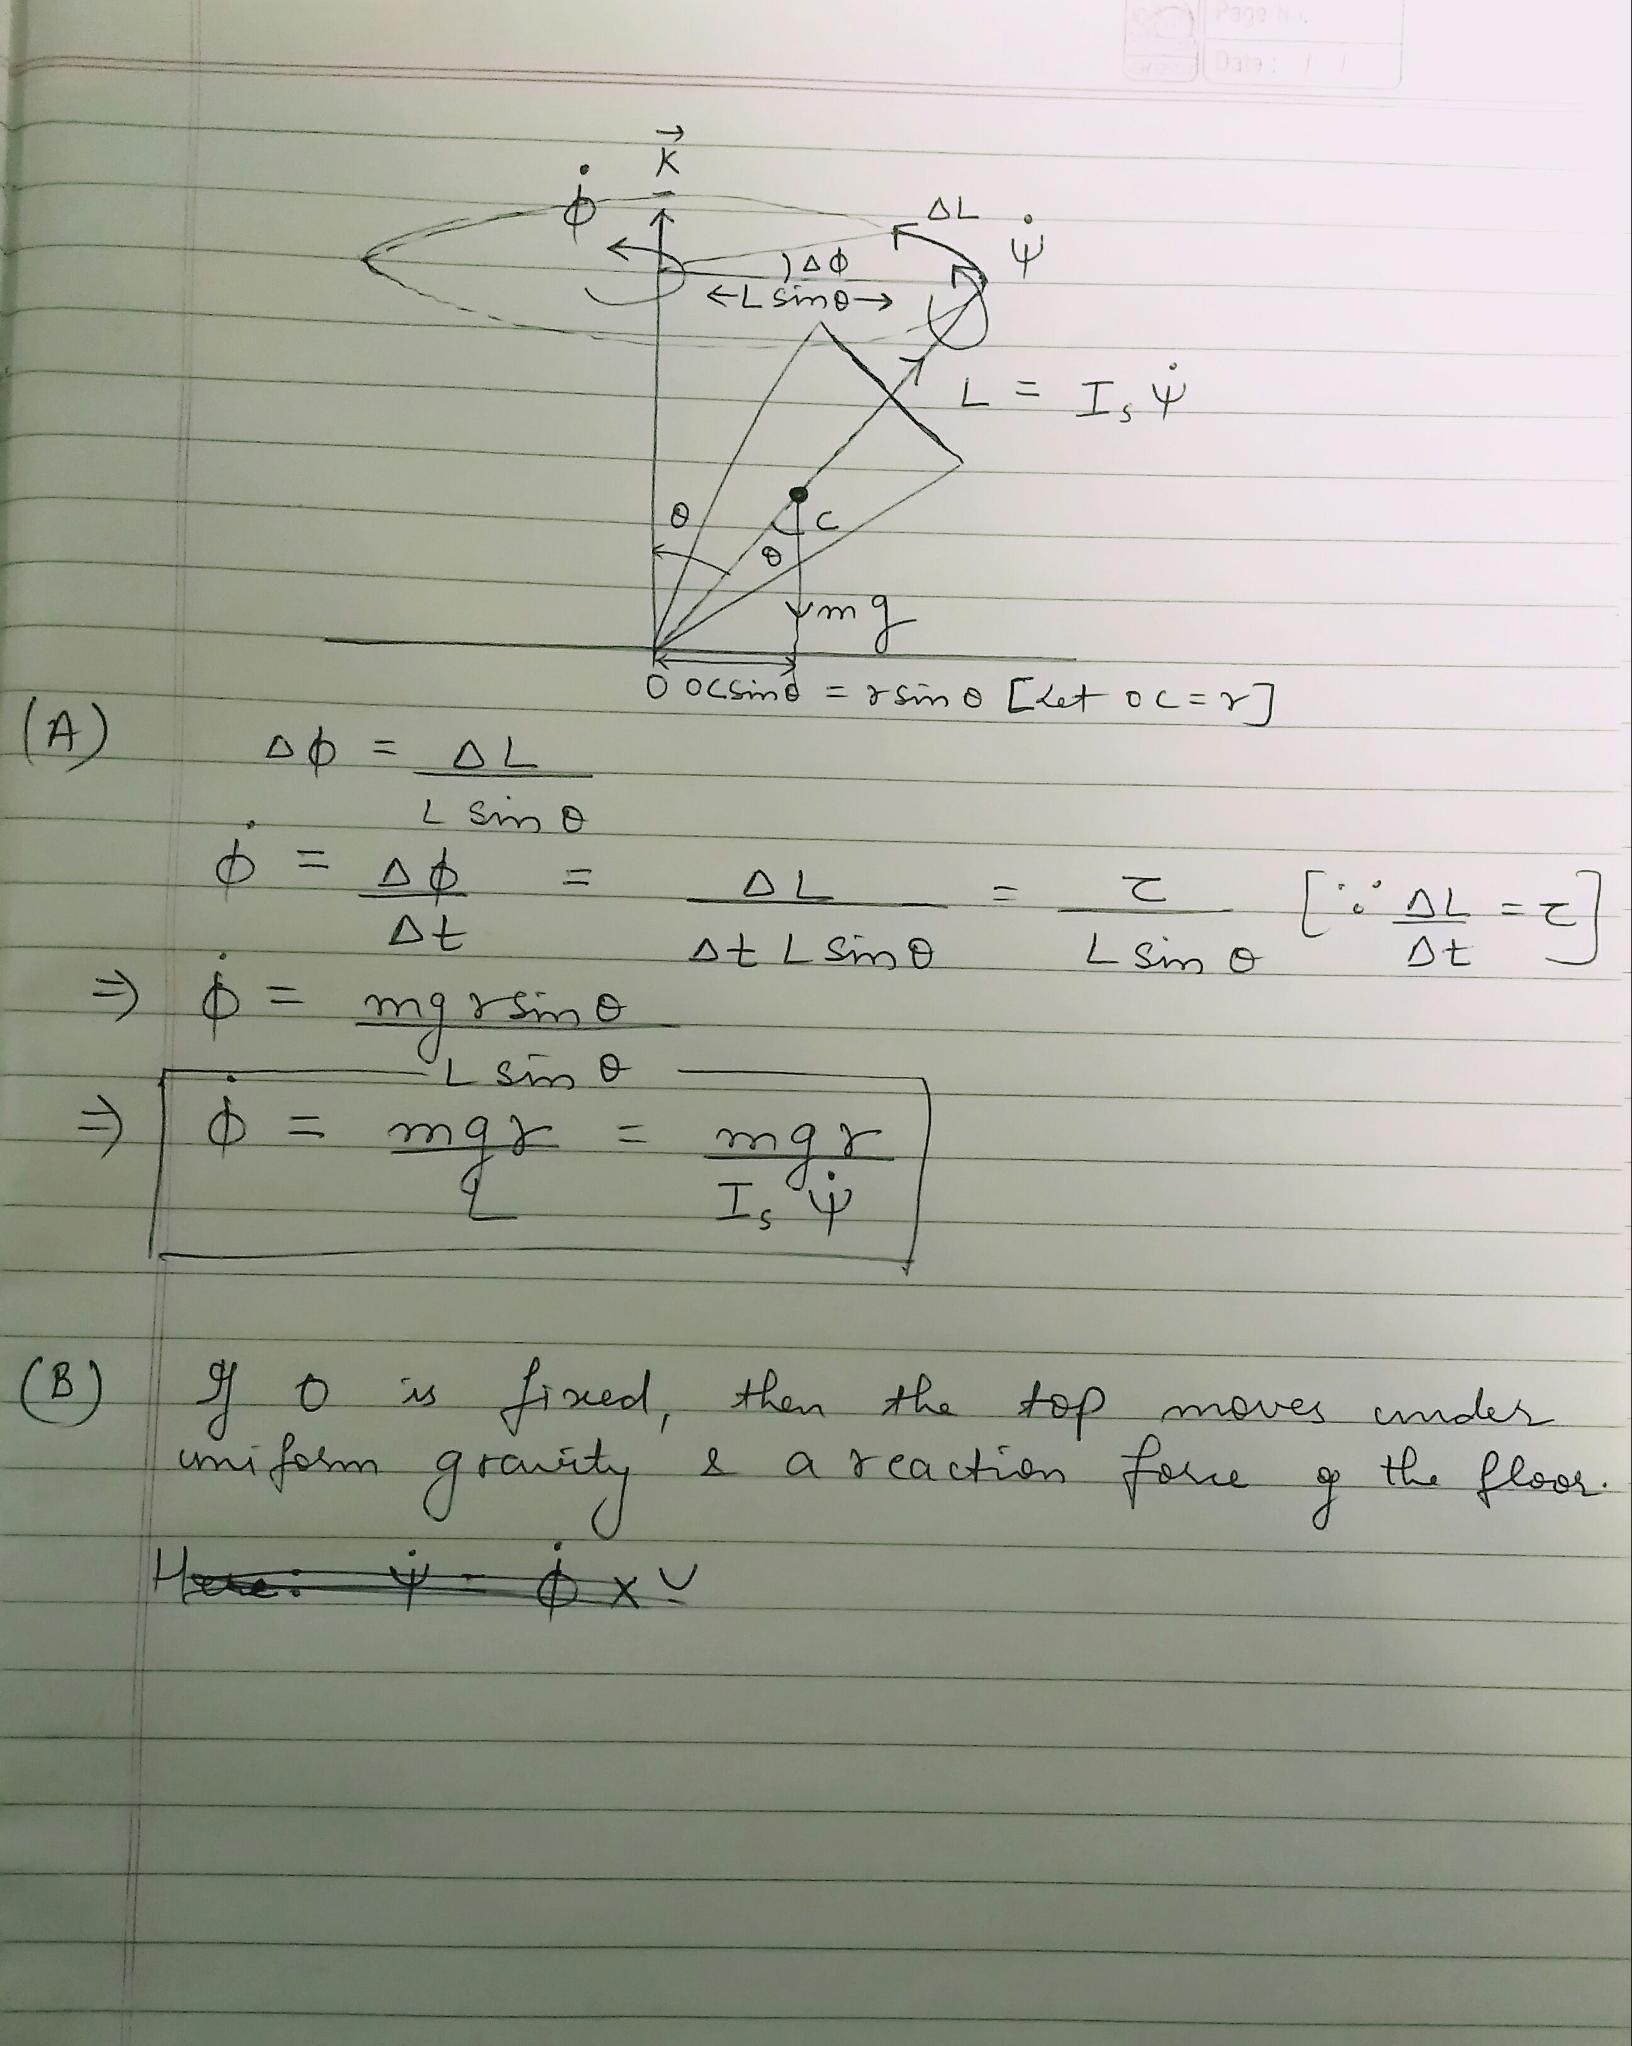 Page No.
Date: / /
K⃗
φ̇
ΔL
ψ̇
)Δφ
←L sinθ→
L = I_s ψ̇
θ
C
θ
mg
O OC sinθ = r sinθ [Let OC = r]
(A) Δφ = ΔL / L sinθ
φ̇ = Δφ/Δt = ΔL / Δt L sinθ = τ / L sinθ [∵ ΔL/Δt = τ]
⇒ φ̇ = mg r sinθ / L sinθ
⇒ φ̇ = mgr / L = mgr / I_s ψ̇
(B) If O is fixed, then the top moves under
uniform gravity & a reaction force of the floor.
Here: ψ̇ = φ̇ x